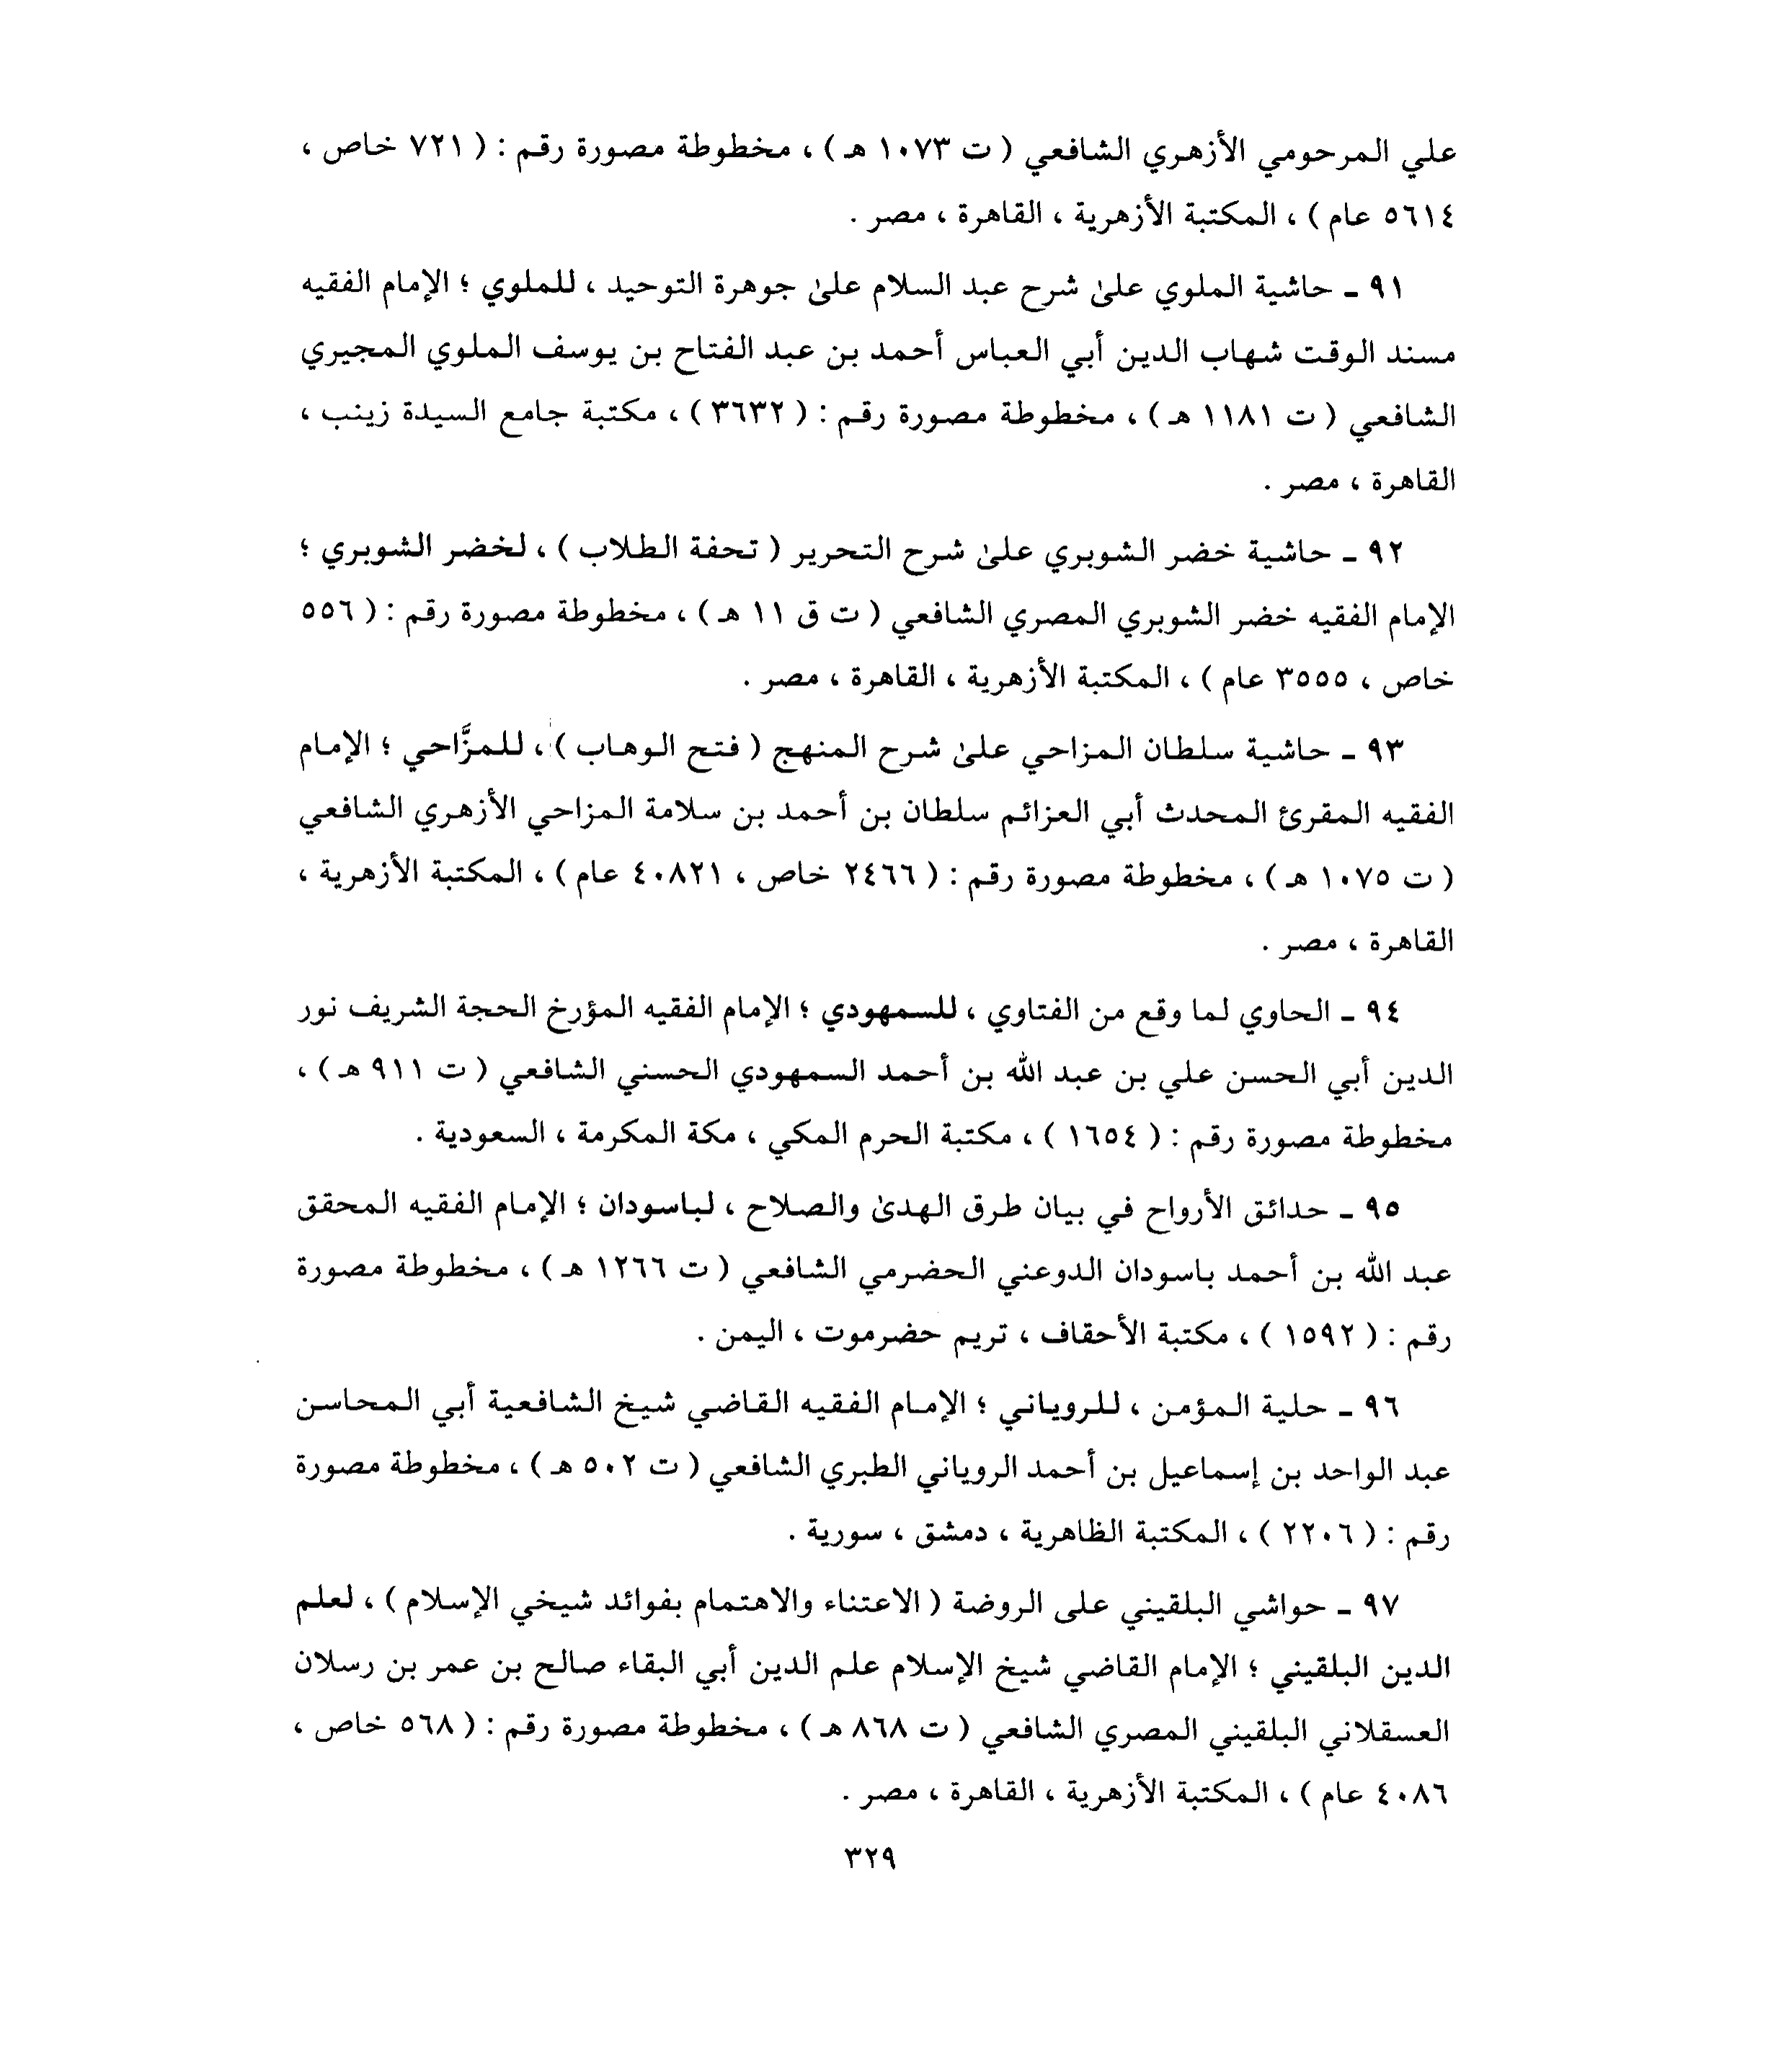 علي المرحومي الأزهري الشافعي ( ت ١٠٧٣ هـ ) ، مخطوطة مصورة رقم : ( ٧٢١ خاص ،
٥٦١٤ عام ) ، المكتبة الأزهرية ، القاهرة ، مصر .
٩١ ـ حاشية الملوي علىٰ شرح عبد السلام علىٰ جوهرة التوحيد ، للملوي ؛ الإمام الفقيه
مسند الوقت شهاب الدين أبي العباس أحمد بن عبد الفتاح بن يوسف الملوي المجيري
الشافعي ( ت ١١٨١ هـ ) ، مخطوطة مصورة رقم : ( ٣٦٣٢ ) ، مكتبة جامع السيدة زينب ،
القاهرة ، مصر .
٩٢ ـ حاشية خضر الشوبري علىٰ شرح التحرير ( تحفة الطلاب ) ، لخضر الشوبري ؛
الإمام الفقيه خضر الشوبري المصري الشافعي ( ت ق ١١ هـ ) ، مخطوطة مصورة رقم : ( ٥٥٦
خاص ، ٣٥٥٥ عام ) ، المكتبة الأزهرية ، القاهرة ، مصر .
٩٣ ـ حاشية سلطان المزاحي علىٰ شرح المنهج ( فتح الوهاب ) ، للمزَّاحي ؛ الإمام
الفقيه المقرئ المحدث أبي العزائم سلطان بن أحمد بن سلامة المزاحي الأزهري الشافعي
( ت ١٠٧٥ هـ ) ، مخطوطة مصورة رقم : ( ٢٤٦٦ خاص ، ٤٠٨٢١ عام ) ، المكتبة الأزهرية ،
القاهرة ، مصر .
٩٤ ـ الحاوي لما وقع من الفتاوي ، للسمهودي ؛ الإمام الفقيه المؤرخ الحجة الشريف نور
الدين أبي الحسن علي بن عبد الله بن أحمد السمهودي الحسني الشافعي ( ت ٩١١ هـ ) ،
مخطوطة مصورة رقم : ( ١٦٥٤ ) ، مكتبة الحرم المكي ، مكة المكرمة ، السعودية .
٩٥ ـ حدائق الأرواح في بيان طرق الهدىٰ والصلاح ، لباسودان ؛ الإمام الفقيه المحقق
عبد الله بن أحمد باسودان الدوعني الحضرمي الشافعي ( ت ١٢٦٦ هـ ) ، مخطوطة مصورة
رقم : ( ١٥٩٢ ) ، مكتبة الأحقاف ، تريم حضرموت ، اليمن .
٩٦ ـ حلية المؤمن ، للروياني ؛ الإمام الفقيه القاضي شيخ الشافعية أبي المحاسن
عبد الواحد بن إسماعيل بن أحمد الروياني الطبري الشافعي ( ت ٥٠٢ هـ ) ، مخطوطة مصورة
رقم : ( ٢٢٠٦ ) ، المكتبة الظاهرية ، دمشق ، سورية .
٩٧ ـ حواشي البلقيني على الروضة ( الاعتناء والاهتمام بفوائد شيخي الإسلام ) ، لعلم
الدين البلقيني ؛ الإمام القاضي شيخ الإسلام علم الدين أبي البقاء صالح بن عمر بن رسلان
العسقلاني البلقيني المصري الشافعي ( ت ٨٦٨ هـ ) ، مخطوطة مصورة رقم : ( ٥٦٨ خاص ،
٤٠٨٦ عام ) ، المكتبة الأزهرية ، القاهرة ، مصر .
٣٢٩